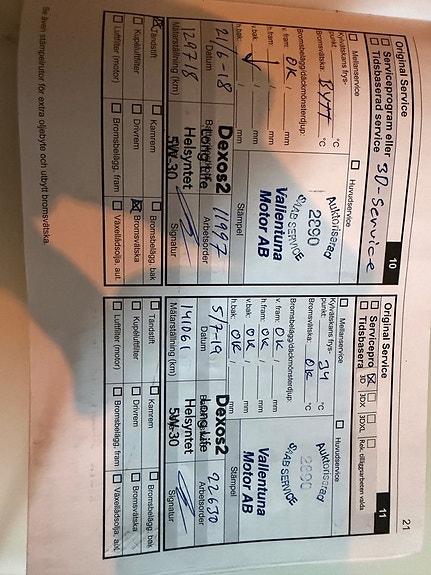 21
Original Service
10
Serviceprogram eller 3D-Service
Tidsbaserad service
Mellanservice
Huvudservice
Kylvätskans frys-
punkt: °C
Bromsvätska: BYTT °C
Bromsbelägg/däckmönsterdjup:
v. fram: OK / mm
h.fram: / mm
v.bak: / mm
h.bak: / mm
Auktoriserad
2890
SAAB SERVICE
Vallentuna
Motor AB
Stämpel
21/6-18
Datum
Dexos2
Long Life
5W-30
Helsyntet
11987
Arbetsorder
129718
Mätarställning (km)
Signatur
Tändstift
Kamrem
Bromsbelägg. bak
Kupéluftfilter
Drivrem
Bromsvätska
Luftfilter (motor)
Bromsbelägg. fram
Växellådsolja, aut.
Original Service
11
Servicepro
Tidsbasera
3D
3DX
3DXL
Rek. tilläggsarbeten valda
Mellanservice
Huvudservice
Kylvätskans frys-
punkt: 34 °C
Bromsvätska: OK °C
Bromsbelägg/däckmönsterdjup:
v. fram: OK / mm
h.fram: OK / mm
v.bak: OK / mm
h.bak: OK / mm
Auktoriserad
2890
SAAB SERVICE
Vallentuna
Motor AB
Stämpel
5/7-19
Datum
Dexos2
Long Life
5W-30
Helsyntet
22630
Arbetsorder
141061
Mätarställning (km)
Signatur
Tändstift
Kamrem
Bromsbelägg. bak
Kupéluftfilter
Drivrem
Bromsvätska
Luftfilter (motor)
Bromsbelägg. fram
Växellådsolja, aut.
Se även stämpelrutor för extra oljebyte och utbytt bromsvätska.